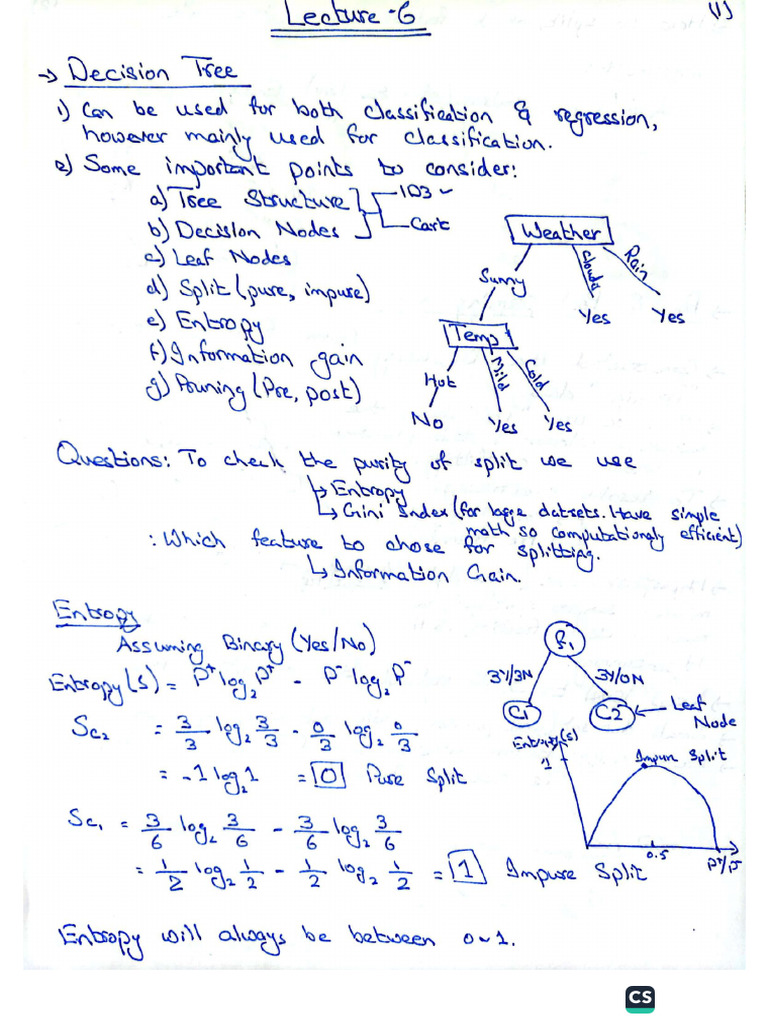 Lecture-6
(1)
→ Decision Tree
1) Can be used for both classification & regression,
however mainly used for classification.
2) Some important points to consider:
a) Tree Structure
b) Decision Nodes
ID3 ✓
Cart
c) Leaf Nodes
d) Split (pure, impure)
e) Entropy
f) Information gain
g) Pruning (Pre, post)
Weather
Sunny
Cloudy
Rain
Yes
Yes
Temp
Hot
Mild
Cold
No
Yes
Yes
Questions: To check the purity of split we use
↳ Entropy
↳ Gini Index (for large datsets. Have simple
math so computationaly efficient)
: Which feature to chose for splitting.
↳ Information Gain.
Entropy
Assuming Binary (Yes/No)
Entropy(s) = P⁺ log₂ P⁺ - P⁻ log₂ P⁻
f₁
3Y/3N
3Y/0N
C1
C2
← Leaf
Node
Sc₂ = 3/3 log₂ 3/3 - 0/3 log₂ 0/3
= -1 log₂ 1 = 0 Pure Split
Sc₁ = 3/6 log₂ 3/6 - 3/6 log₂ 3/6
= 1/2 log₂ 1/2 - 1/2 log₂ 1/2 = 1 Impure Split
Entropy(s)
1
Impure Split
0.5
P⁺/P⁻
Entropy will always be between 0~1.
CS